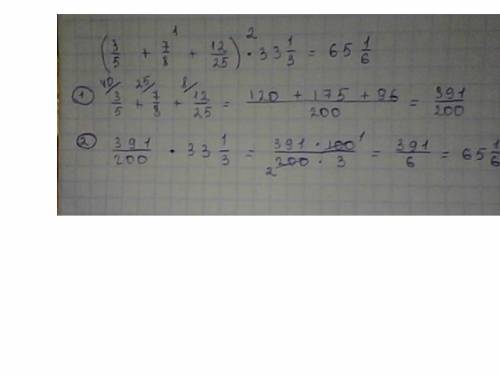 (3/5 + ¹ 7/8 + 12/25) ² · 33 1/3 = 65 1/6
① ⁴⁰/ 3/5 + ²⁵/ 7/8 + ⁸/ 12/25 = (120 + 175 + 96)/200 = 391/200
② 391/200 · 33 1/3 = (391 · 100 ¹)/(₂ 200 · 3) = 391/6 = 65 1/6